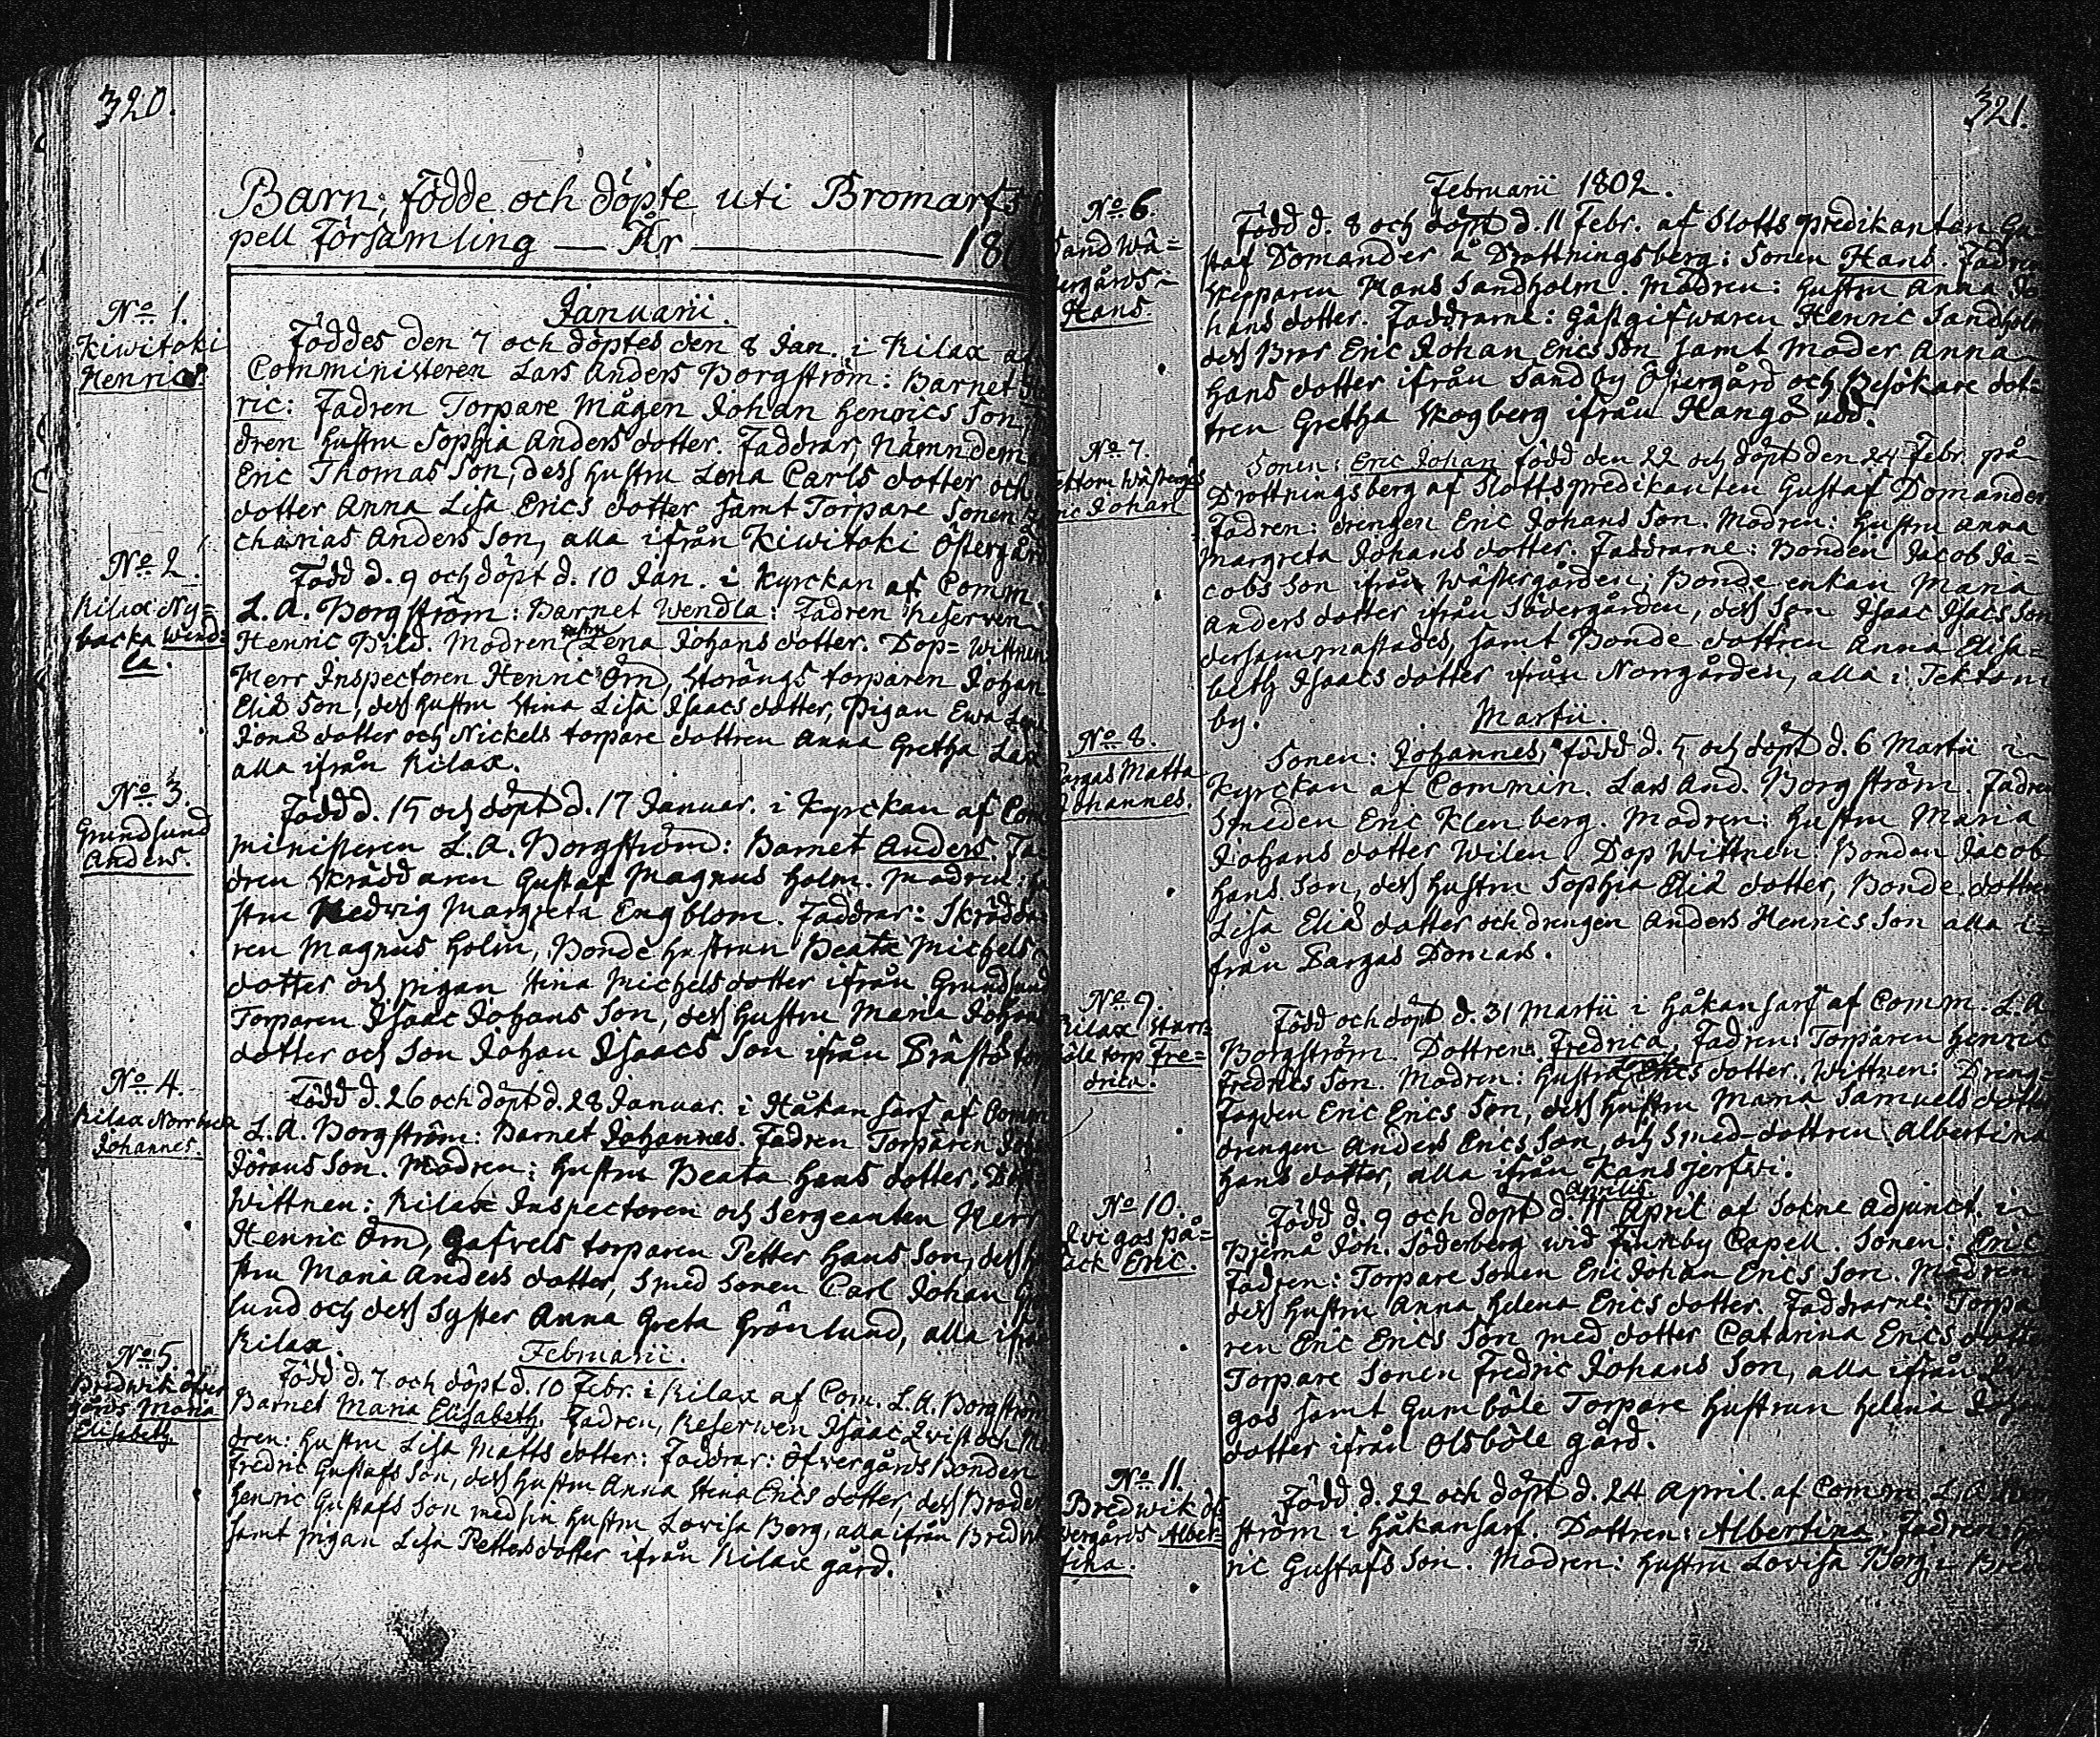 320.
Barn, födde och döpte uti Bromarfs
pell Församling — År — 180
Januarii.
No 1.
Kiwitoki
Henric.
Föddes den 7 och döptes den 8 Jan. i Kilax af
Comministeren Lars Anders Borgström: Barnet
ric: Fadren Torpare Mågen Johan Henrics Son,
dren hustru Sophia Anders dotter. Faddrar, Nämndem
Eric Thomas Son, dess hustru Lena Carls dotter och
dotter Anna Lisa Erics dotter samt Torpare Sonen
charias Anders Son, alla ifrån Kiwitoki Östergård
No 2.
Kilax Ny=
backa Wend=
la.
Född d. 9 och döpt d. 10 Jan. i Kyrckan af Comm.
L. A. Borgström: Barnet Wendla: Fadren Reserven
Henric Pild. Modren hustru Lena Johans dotter. Dop=Wittnen
Herr Inspectoren Henric Öm, Storängs torparen Johan
Eliæ Son, dess hustru Stina Lisa Isaacs dotter, Pigan Ewa
Jonæ dotter och Nickels torpare dottren Anna Gretha
alla ifrån Kilax.
No 3.
Grundsund
Anders.
Född d. 15 och döpt d. 17 Januar. i Kyrckan af Com
ministeren L. A. Borgström: Barnet Anders. Fa
dren Skräddaren Gustaf Magnus Holm. Modren: hu
stru Hedvig Margreta Engblom. Faddrar: Skrädda
ren Magnus Holm, Bonde hustrun Beata Michels
dotter och pigan Stina Michels dotter ifrån Grundsund
Torparen Isaac Johans Son, dess hustru Maria Johans
dotter och Son Johan Isaacs Son ifrån Prästös tor
No 4.
Kilax Norrbacka
Johannes.
Född d. 26 och döpt d. 28 Januar. i Håkansarf af Comm
L. A. Borgström: Barnet Johannes. Fadren Torparen Joh
Jörans Son. Modren: hustru Beata Hans dotter. Dop
Wittnen: Kilax Inspectoren och Sergeanten Herr
Henric Öm, Gafvels torparen Petter Hans Son, dess hu
stru Maria Anders dotter, Smed Sonen Carl Johan Grön
lund och dess Syster Anna Greta Grönlund, alla ifrån
Kilax.
Februarii.
No 5.
Bredwik Öfver
gårds Maria
Elisabeth
Född d. 7 och döpt d. 10 Febr. i Kilax af Com. L. A. Borgström
Barnet Maria Elisabeth. Fadren, Reserven Isaac Qwist och Mo
dren: hustru Lisa Matts dotter: Faddrar: Öfvergårds Bonden
Fredric Gustafs Son, dess hustru Anna Stina Erics dotter, dess Broder
Henric Gustafs Son med sin hustru Lovisa Borg, alla ifrån Bredwik
samt pigan Lisa Petters dotter ifrån Kilax gård.
321.
Februarii 1802.
No 6.
Sand Wä=
tergårds=
Hans.
Född d. 8 och döpt d. 11 Febr. af Slotts predikanten Gu
staf Domander å Drottningsberg: Sonen Hans. Fadren
Skepparen Hans Sandholm. Modren: hustru Anna Jo
hans dotter. Faddrarne: Gästgifwaren Henric Sandholm
dess Bror Eric Johan Erics Son samt Moder Anna
Hans dotter ifrån Sandby Östergård och Besökare dot=
tren Gretha Skogberg ifrån Hangö udd.
No 7.
Tektom Wästergårds
Eric Johan
Sonen: Eric Johan född den 22 och döpt den 24 Febr. på
Drottningsberg af Slottspredikanten Gustaf Domander
Fadren: drengen Eric Johans Son. Modren: hustru Anna
Margreta Johans dotter. Faddrarne: Bonden Jacob Ja=
cobs Son ifrån Wästergården; Bonde enkan Maria
Anders dotter ifrån Södergården, dess Son Isaac Isacs Son
dersammastades, samt Bonde dottren Anna Elisa=
beth Isaacs dotter ifrån Norrgården, alla i Tektom
by.
Martii.
No 8.
Pargas Matta
Johannes.
Sonen: Johannes, född d. 5 och döpt d. 6 Martii i
Kyrckan af Commin. Lars And. Borgström. Fadren
Smeden Eric Klenberg. Modren: hustru Maria
Johans dotter Wilen. Dop Wittnen: Bonden Jacob
Hans Son, dess hustru Sophia Eliæ dotter, Bonde dottren
Lisa Eliæ dotter och drengen Anders Henrics Son alla i=
från Pargas Domars.
No 9.
Kilax Starr=
böle torp Fre=
drica.
Född och döpt d. 31 Martii i Håkansarf af Comm. L. A.
Borgström. Dottren: Fredrica. Fadren: Torparen Henric
Fredrics Son. Modren: hustru Erics dotter. Wittnen: Dreng=
Fogden Eric Erics Son, dess hustru Maria Samuels dotter
drengen Anders Erics Son, och Smed-dottren Albertina
Hans dotter, alla ifrån Kansjerfvi.
Aprilis
No 10.
Qvigos På=
back Eric.
Född d. 9 och döpt d. 11 April af Sokne Adjunct. i
Bjerno Joh. Söderberg wid Finnby Capell. Sonen: Eric
Fadren: Torpare Sonen Eric Johan Erics Son. Modren
dess hustru Anna Helena Erics dotter. Faddrarne: Torpa
ren Eric Erics Son med dotter Catarina Erics dotter
Torpare Sonen Fredric Johans Son, alla ifrån Qvi
gos samt Gumböle Torpare hustrun Helena Johans
dotter ifrån Olsböle gård.
No 11.
Bredwik Öf
vergårds Alber
tina.
Född d. 22 och döpt d. 24 April. af Comm. L. A. Borg
ström i Håkansarf. Dottren: Albertina. Fadren: Hen
ric Gustafs Son. Modren: hustru Lovisa Borg i Bredw